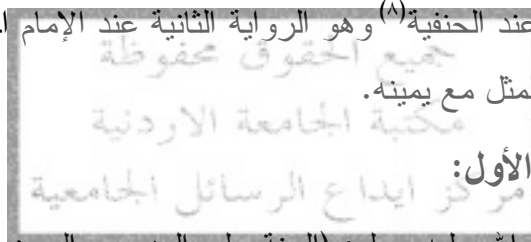 عند الحنفية(٨) وهو الرواية الثانية عند الإمام
جميع الحقوق محفوظة
مثل مع يمينه.
مكتبة الجامعة الاردنية
الأول:
مركز ايداع الرسائل الجامعية